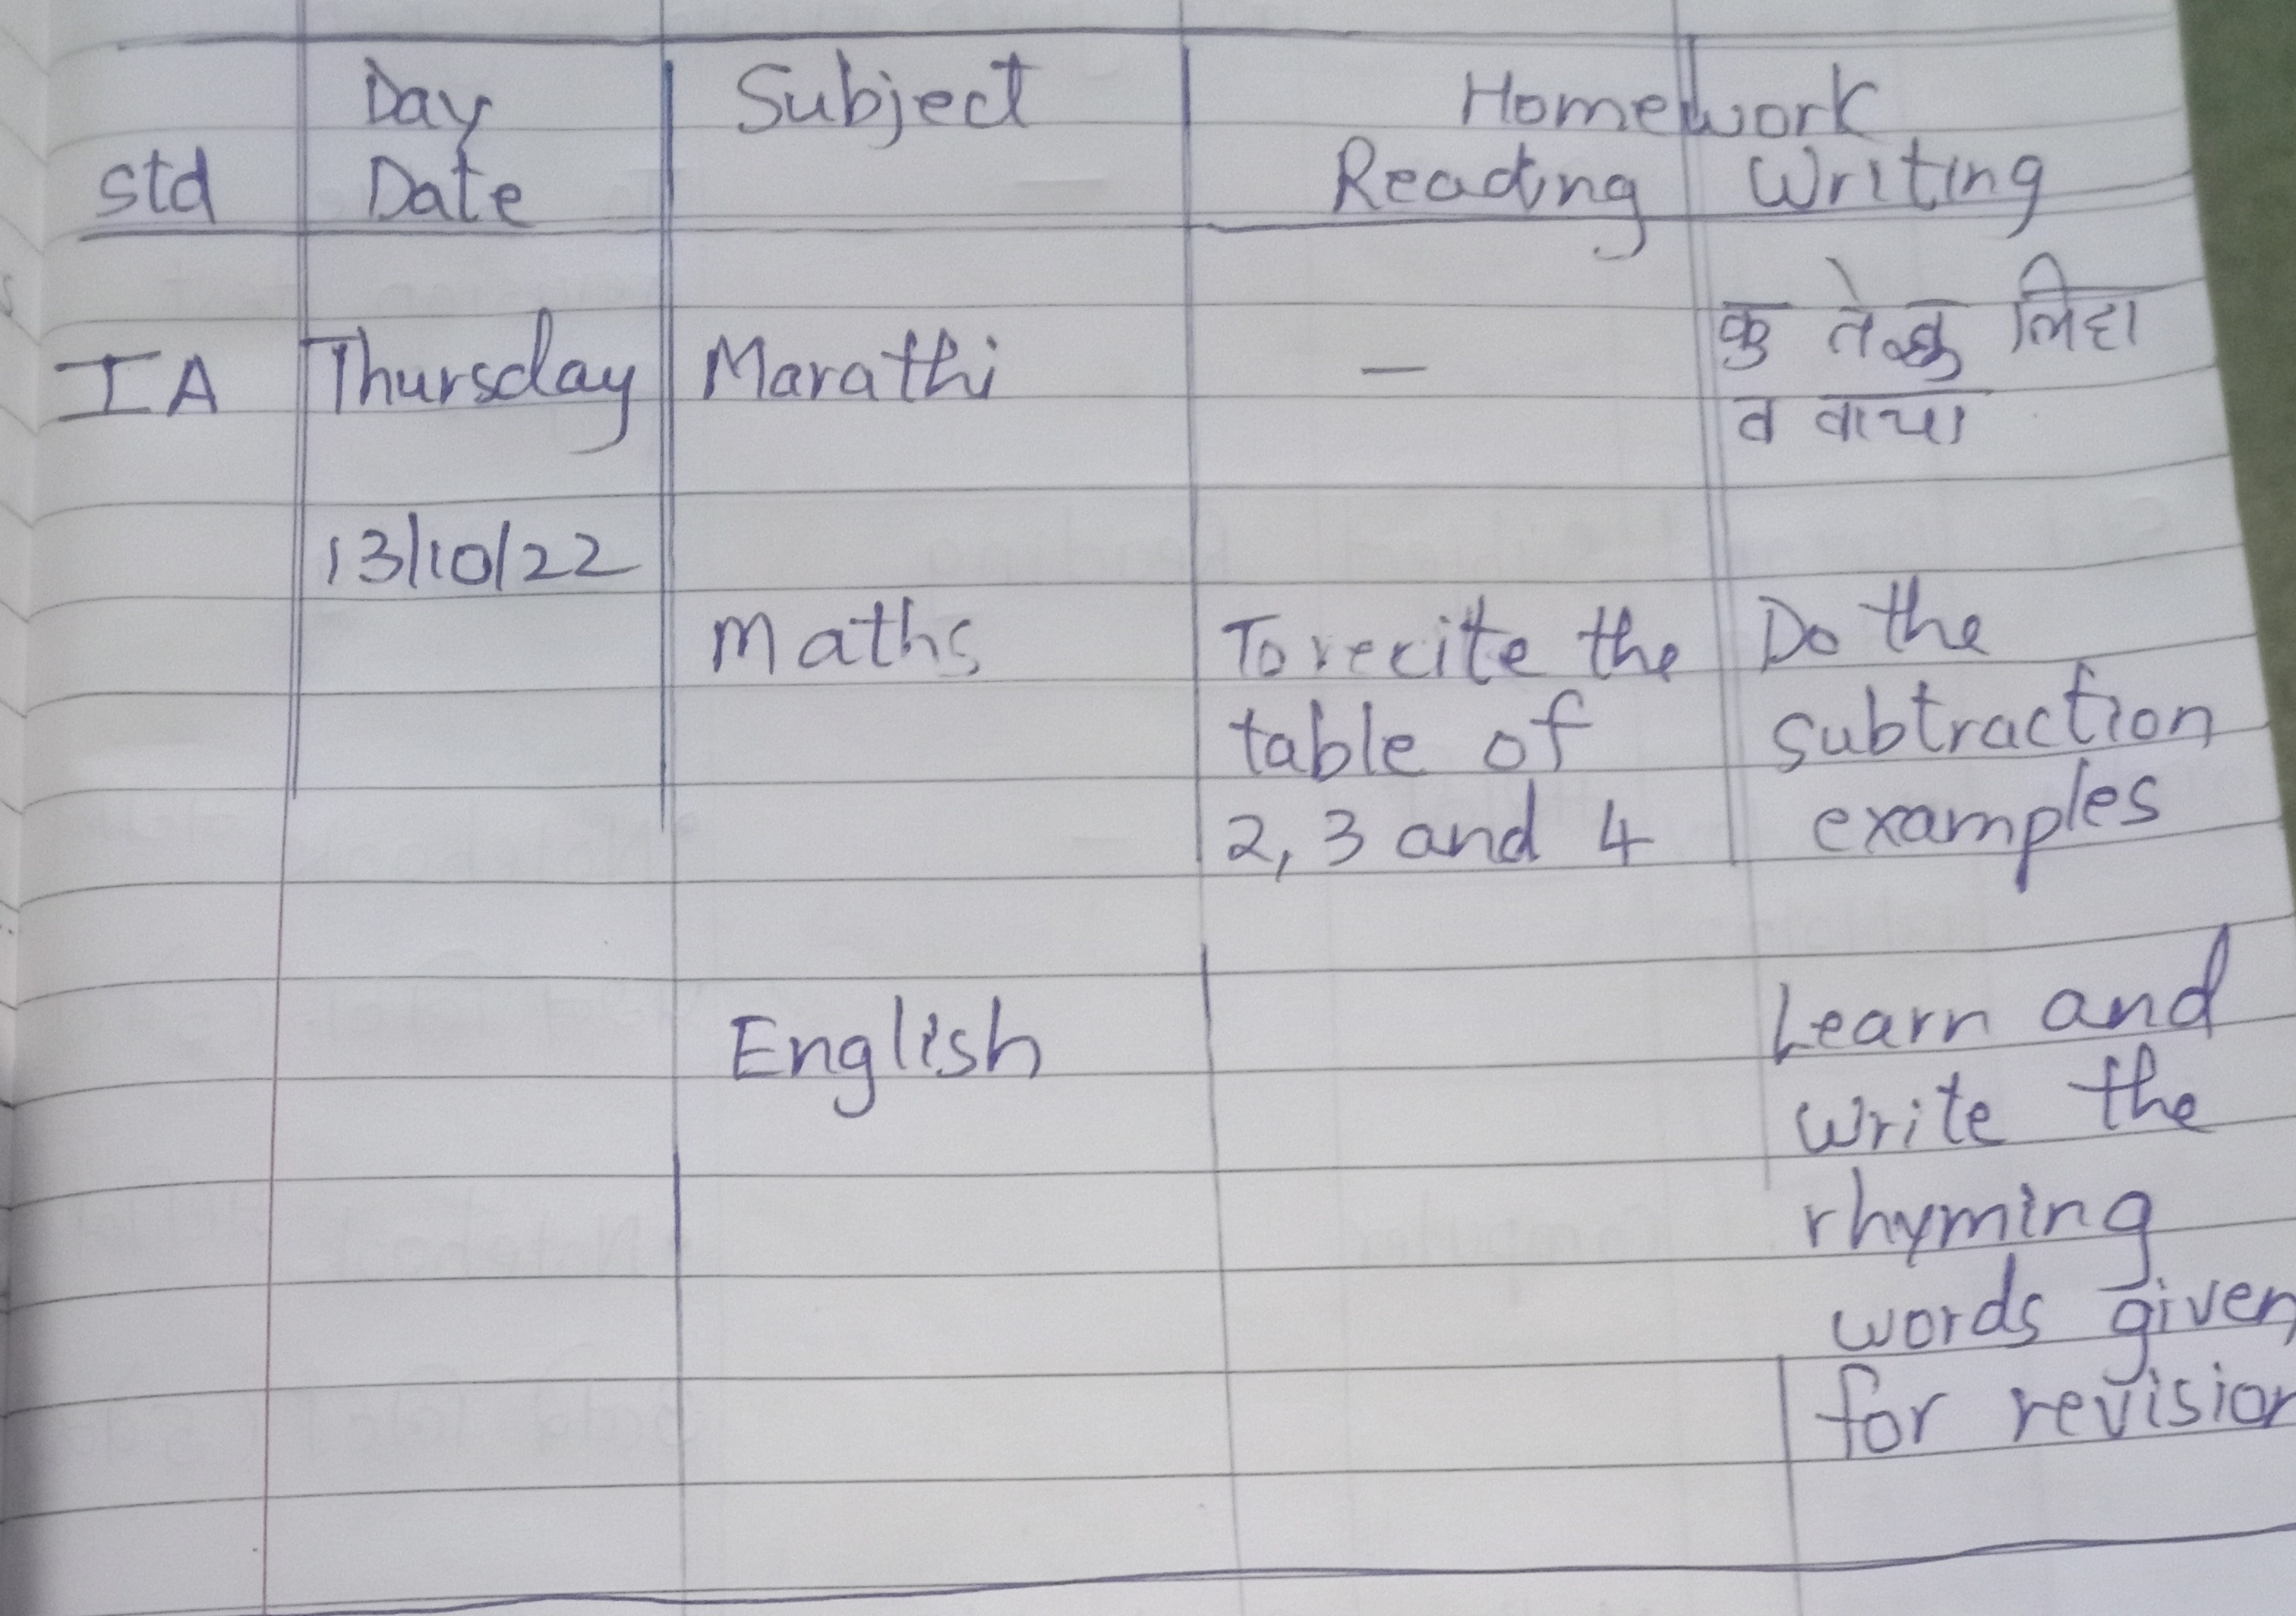 Day Subject Homework
std Date Reading Writing
IA Thursday Marathi – कु ते ज्ञु लिहा
व वाचा
13/10/22
Maths To recite the Do the
table of subtraction
2, 3 and 4 examples
English Learn and
write the
rhyming
words given
for revision